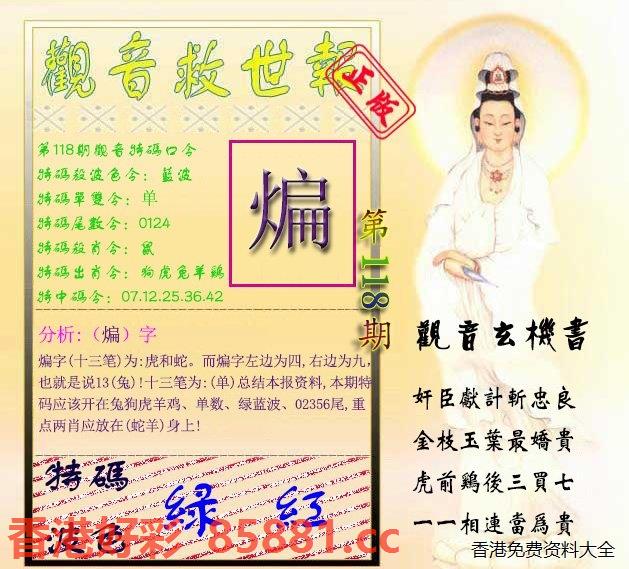 觀音救世報
正版
第118期觀音特碼口令
特碼殺波色令：藍波
特碼單雙令：单
特碼尾數令：0124
特碼殺肖令：鼠
特碼出肖令：狗虎兔羊鷄
特中碼令：07.12.25.36.42
煸
第118期
分析:（煸）字
煸字(十三笔)为:虎和蛇。而煸字左边为四,右边为九,
也就是说13(兔)!十三笔为:(单)总结本报资料,本期特
码应该开在兔狗虎羊鸡、单数、绿蓝波、02356尾,重
点两肖应放在(蛇羊)身上!
觀音玄機書
奸臣獻計斬忠良
金枝玉葉最嬌貴
虎前鷄後三買七
一一相連當爲貴
特碼
波色
绿 红
香港好彩 85881.cc
香港免费资料大全